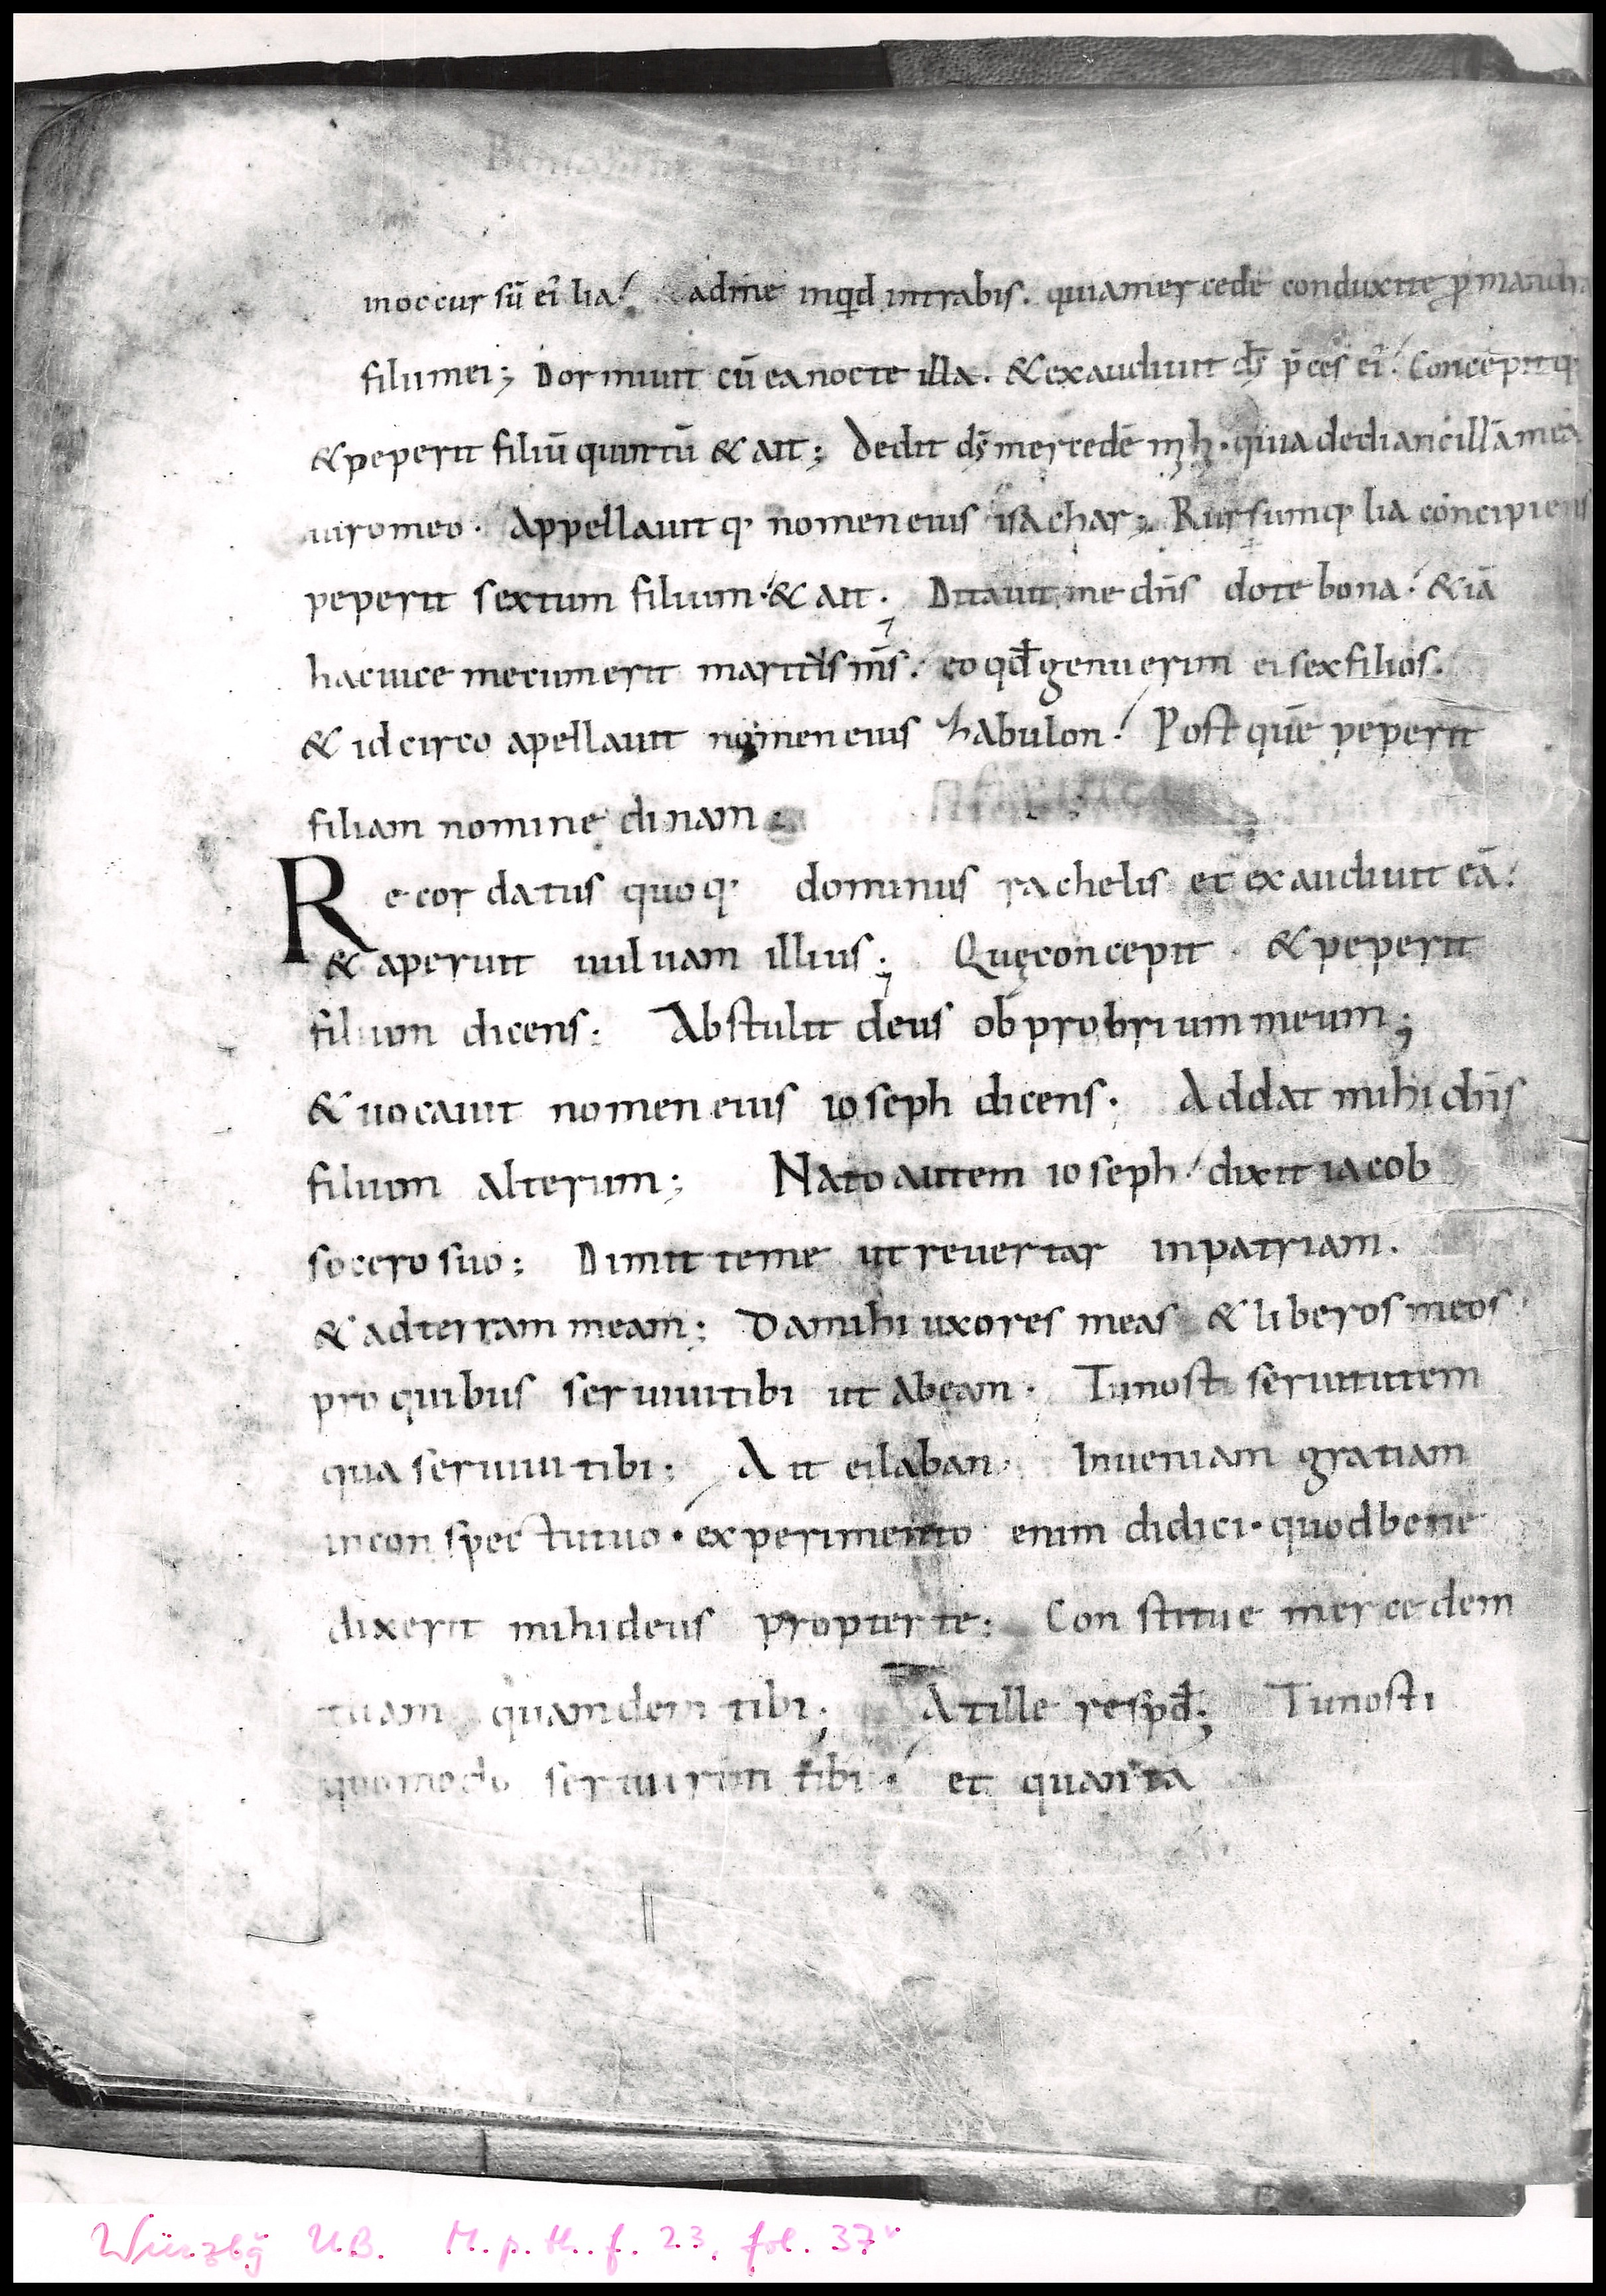 inoccursū ei lia. adme inqd intrabis. quiamercedē conduxite p mandra
filiimei; Dormiuit cū eanocte illa. & exaudiuit ds p̄ces ei. Concepitq;
& peperit filiū quintū & ait; Dedit ds mercedē mihi. quia dediancillāmeā
uiromeo. Appellauitq; nomeneius isachar; Rursumq; lia concipiens
peperit sextum filium. & ait. Ditauit me dns dote bona. & iā
hacuice mecumerit maritus ms. eo qd genuerim ei sexfilios.
& idcirco apellauit nomeneius habulon. Postquē peperit
filiam nomine dinam;
Recordatus quoq; dominus rachelis et exaudiuit eā.
& aperuit uuluam illius; Quęconcepit. & peperit
filium dicens: Abstulit deus obprobriummeum;
& uocauit nomeneius ioseph dicens. Addat mihidns
filium alterum; Nato autem ioseph dixit iacob
socerosuo; Dimitteme utreuertar inpatriam.
& adterrammeam; Damihi uxores meas & liberosmeos
proquibus seruiuitibi ut abeam. Tunosti seruitutem
qua seruiuitibi; Ait eilaban. Inueniam gratiam
inconspectutuo. experimento enim didici. quodbene
dixerit mihideus propterte; Constitue mercedem
tuam quamdem tibi; Atille respd; Tunosti
quomodo seruiuerim tibi. et quanta
Würzbg U.B. M.p.th.f. 23, fol. 37v